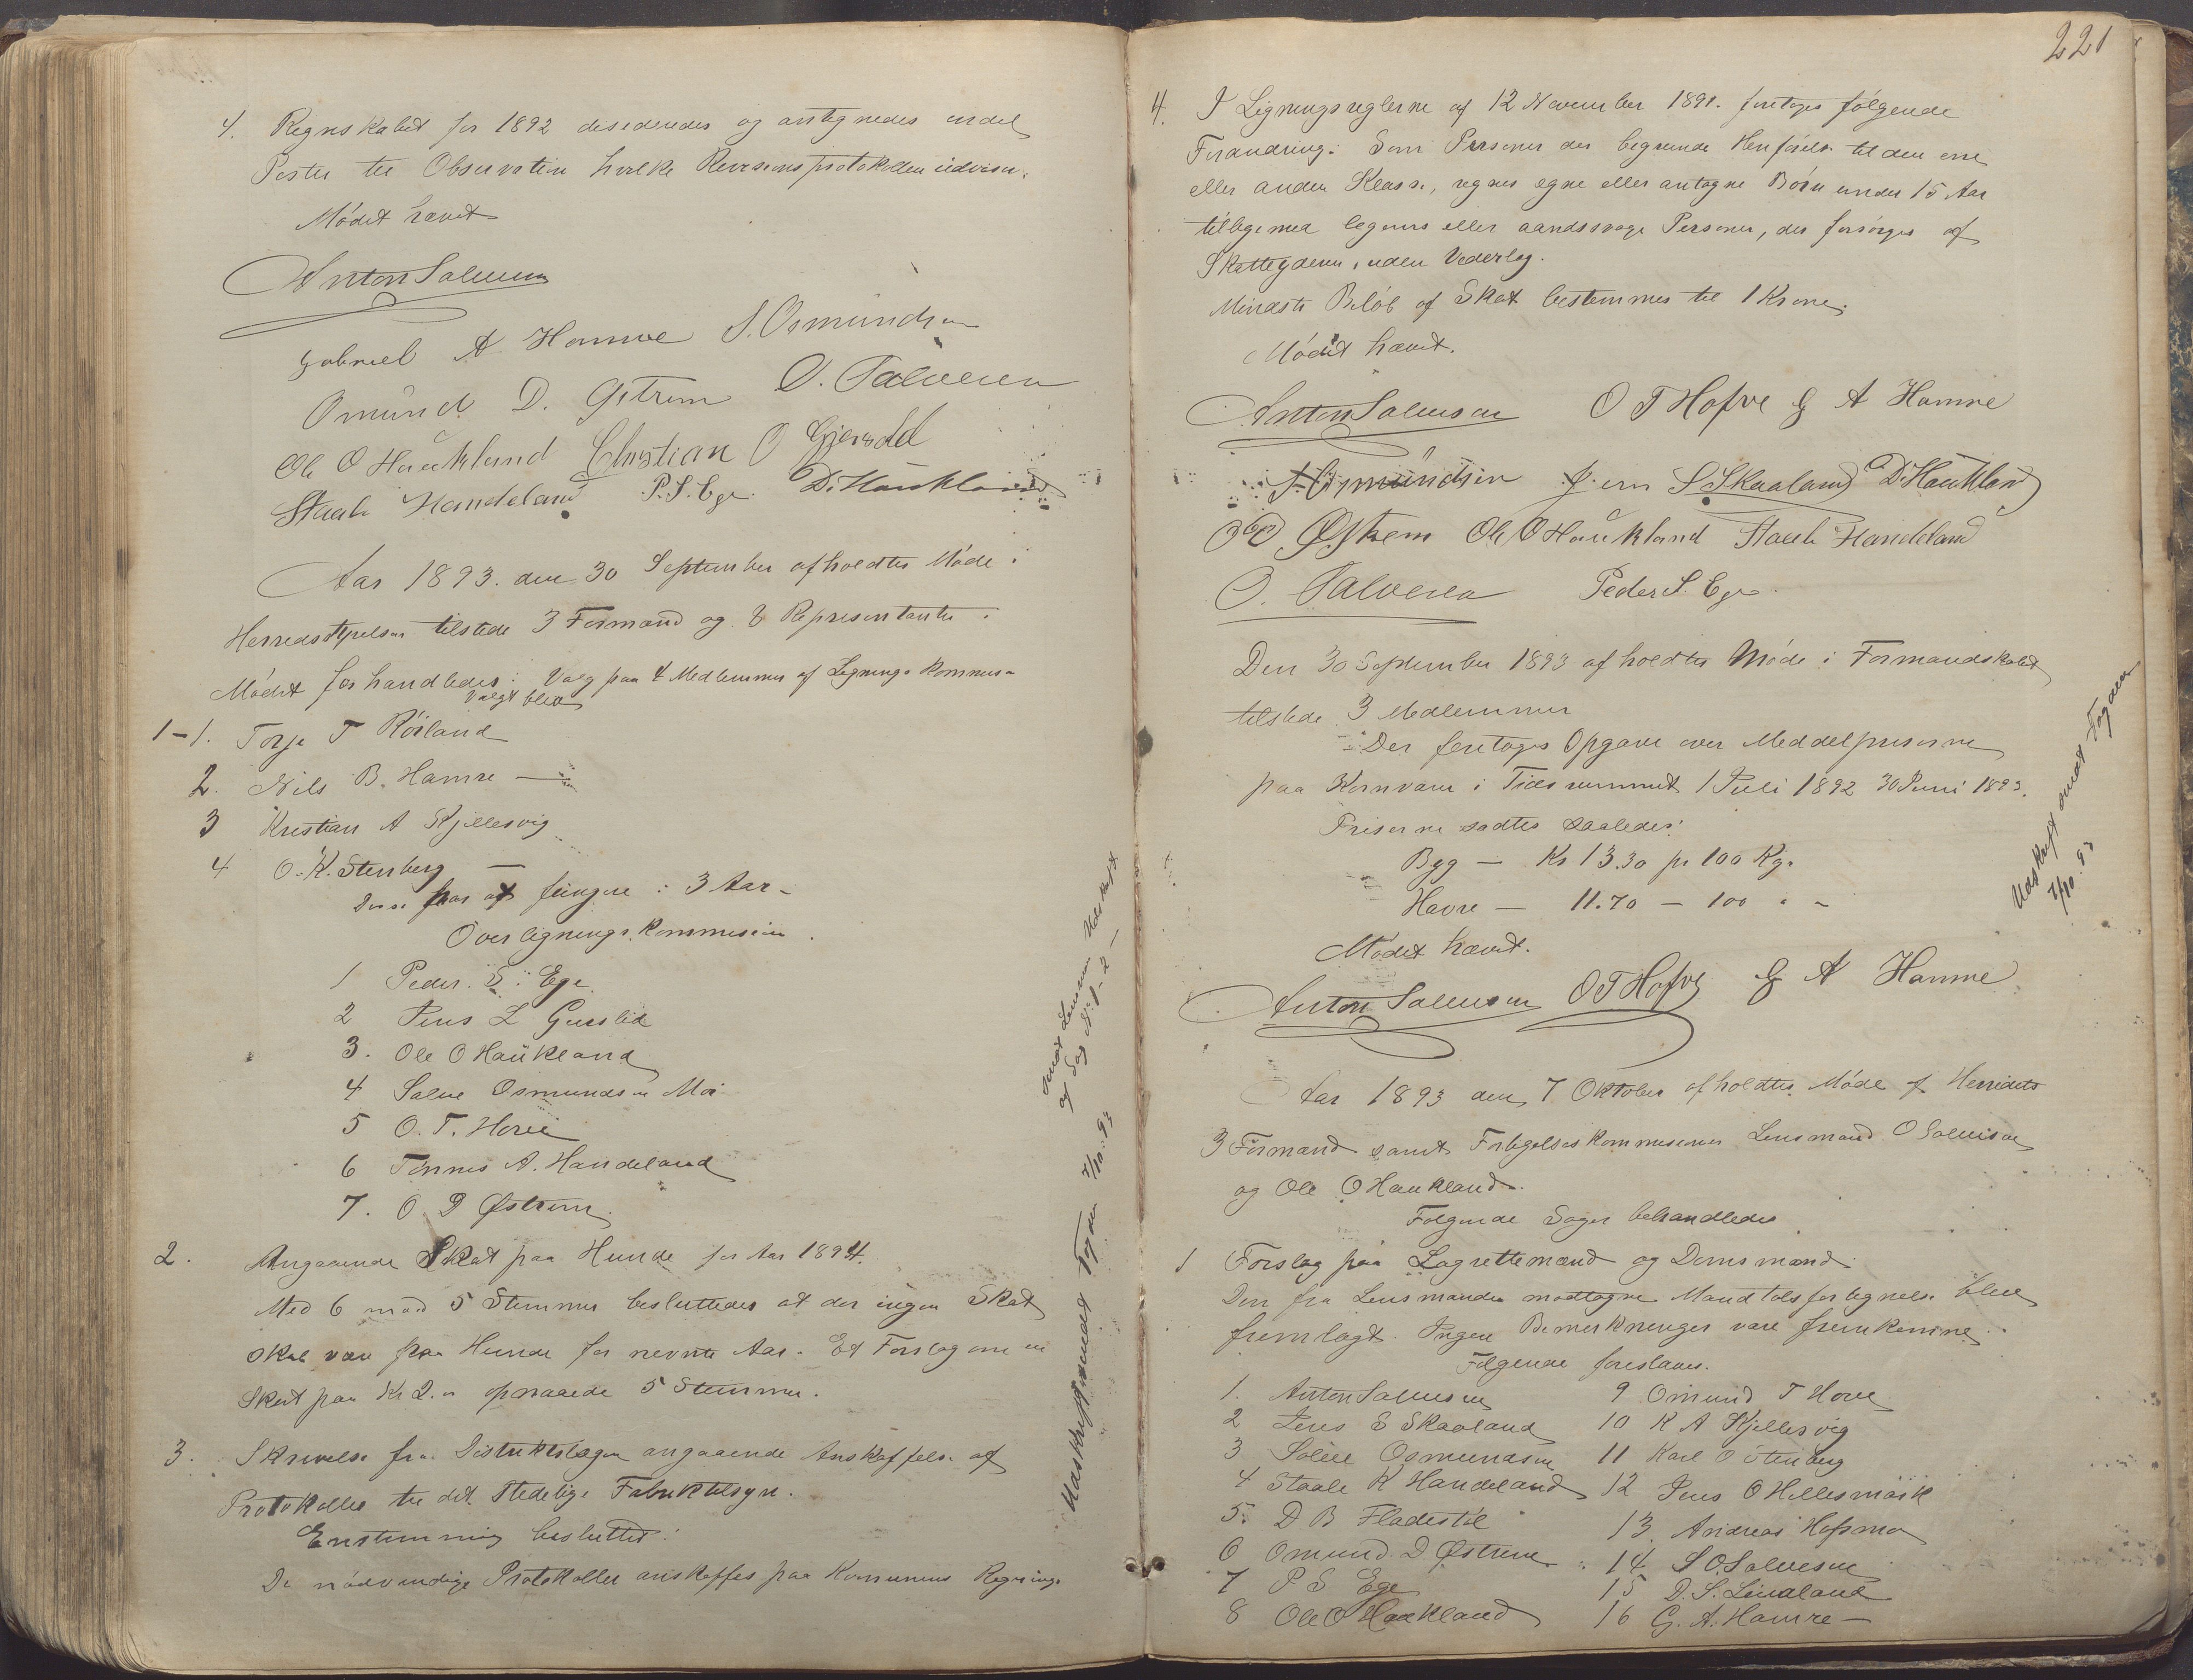 4. Regnskabet for 1892 desiderides og antegnedes endel
Poster til Observation hvilke Revisionsprotokollen udviser.
Mødet hævet
Anton Salvesen
Gabriel A Hamre S. Osmundsen
Omund D. Østrem O. Salvesen
Ole O Haukland Christian O Gjersdal
Staale Handeland P. S. Ege. D. Haukland
Aar 1893. den 30 September afholdtes Møde i
Herredsstyrelsen tilstede 3 Formænd og 8 Representanter.
Mødet forhandledes: Valg paa 4 Medlemmer af Lignings kommis-
Valgt blev
1-1. Torje T Røiland
2. Nils B. Hamre —
3 Kristian A Kjellesvig
4 O. K. Stenberg —
Disse har at fungere i 3 Aar-
Overlignings kommision.
1 Peder. S. Ege.
2 Jens L Gurslid
3. Ole O Haukland
4 Salve Osmundsen Moi
5 O. T. Hove
6 Tønnes A. Handeland
7. O. D Østrem.
2. Angaaende Skat paa Hunde for Aar 1894.
Med 6 mod 5 Stemmer besluttedes at der ingen Skat
skal være paa Hunde for nevnte Aar. Et Forslag om en
Skat paa Kr 2. opnaaede 5 Stemmer.
3. Skrivelse fra Distriktslægen angaaende Anskaffelse af
Protokoller til det Stedelige Fabriktilsyn.
Enstemmig besluttet:
De nødvendige Protokoller anskaffes paa Kommunens Regning.
sendt Lensmann Udskrift
af Sag No 1-2 —
Udskrift sendt Fogden 7/10. 93
221
4. I Ligningsreglerne af 12 November 1891. foretages følgende
Forandring: Som Personer der begrunde Henførelse til den ene
eller anden Klasse, regnes egne eller antagne Børn under 15 Aar
tilligemed legems eller aandssvage Personer, der forsørges af
Skatteyderen, uden Vederlag.
Mindste Beløb af Skat bestemmes til 1 Krone.
Mødet hævet.
Anton Salvesen O T Hofve G A Hamre
S. Osmundsen Jens S Skaaland D. Haukland
O D Østrem Ole O Haukland Staale Handeland
O. Salvesen Peder S. Ege.
Den 30 September 1893 afholdtes Møde i Formandskabet
tilstede 3 Medlemmer
Der foretoges Opgave over Meddelpriserne
paa Kornvarer i Tidsrummet 1 Juli 1892 30 Juni 1893.
Priserne sadtes saaledes:
Byg — Kr 13.30 pr 100 Kg.
Havre — 11.70 — 100 " "
Mødet hævet.
Anton Salvesen O T Hofve G A Hamre
Udskrift sendt Fogden
7/10. 93
Aar 1893 den 7 Oktober afholdtes Møde af Herredets
3 Formænd samt Forligelseskommisærer Lensmand O Salvesen
og Ole O Haukland.
Følgende Sager behandledes
1 Forslag paa Lagrettemænd og Domsmænd.
Den fra Lensmanden modtagne Mandtalsfortegnelse blev
fremlagt. Ingen Bemerkninger vare fremkomne.
Følgende foreslaaes.
1. Anton Salvesen 9 Omund T Hove
2 Jens S Skaaland 10 K A Kjellesvig
3 Salve Osmundsen 11 Karl O Stenberg
4 Staale K Handeland 12 Jens O Hellesmark
5. D B Fladestøl 13. Andreas Hafsmo
6 Omund D Østrem 14. S O. Salvesen
7 P S Ege 15 D. S. Lindland
8 Ole O Haukland 16 G. A. Hamre —